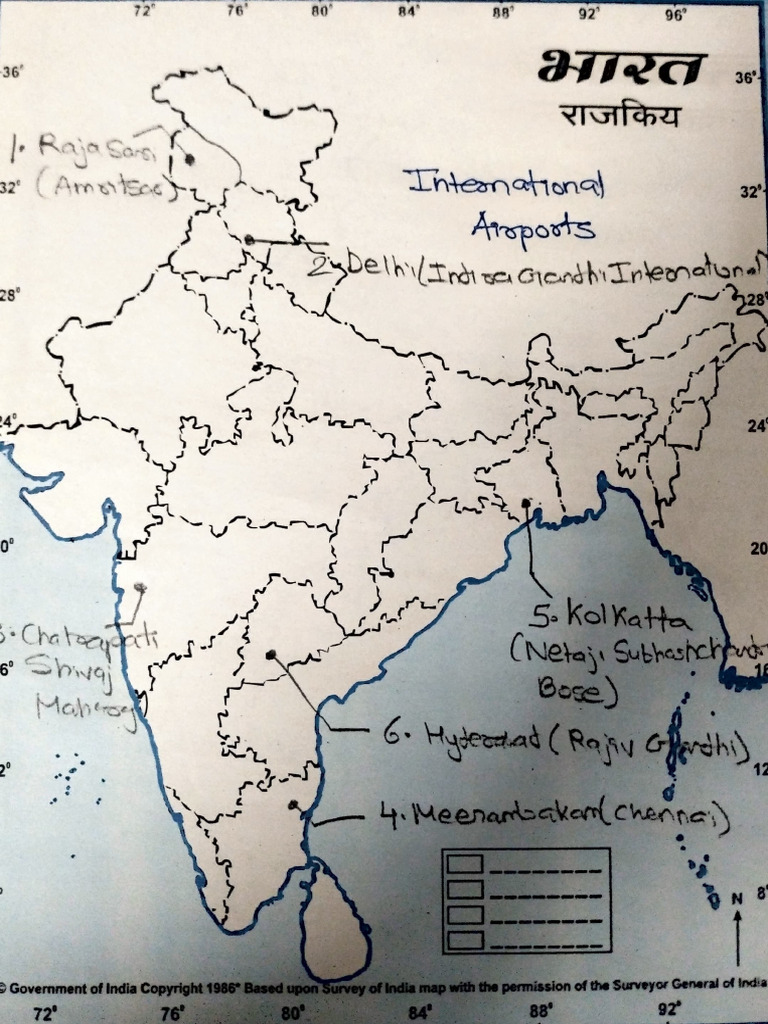 72° 76° 80° 84° 88° 92° 96°
36° 36°
भारत
राजकिय
1. Raja Sansi
(Amritsar)
32° 32°
International
Airports
2. Delhi (Indira Gandhi International)
28° 28°
24° 24°
20
0°
3. Chatrapati
Shivaj
Mahraj
5. Kolkatta
(Netaji Subhashchandra
Bose)
6° 16
6. Hyderabad (Rajiv Gandhi)
2° 12
4. Meenambakam (Chennai)
8°
N
© Government of India Copyright 1986° Based upon Survey of India map with the permission of the Surveyor General of India
72° 76° 80° 84° 88° 92°